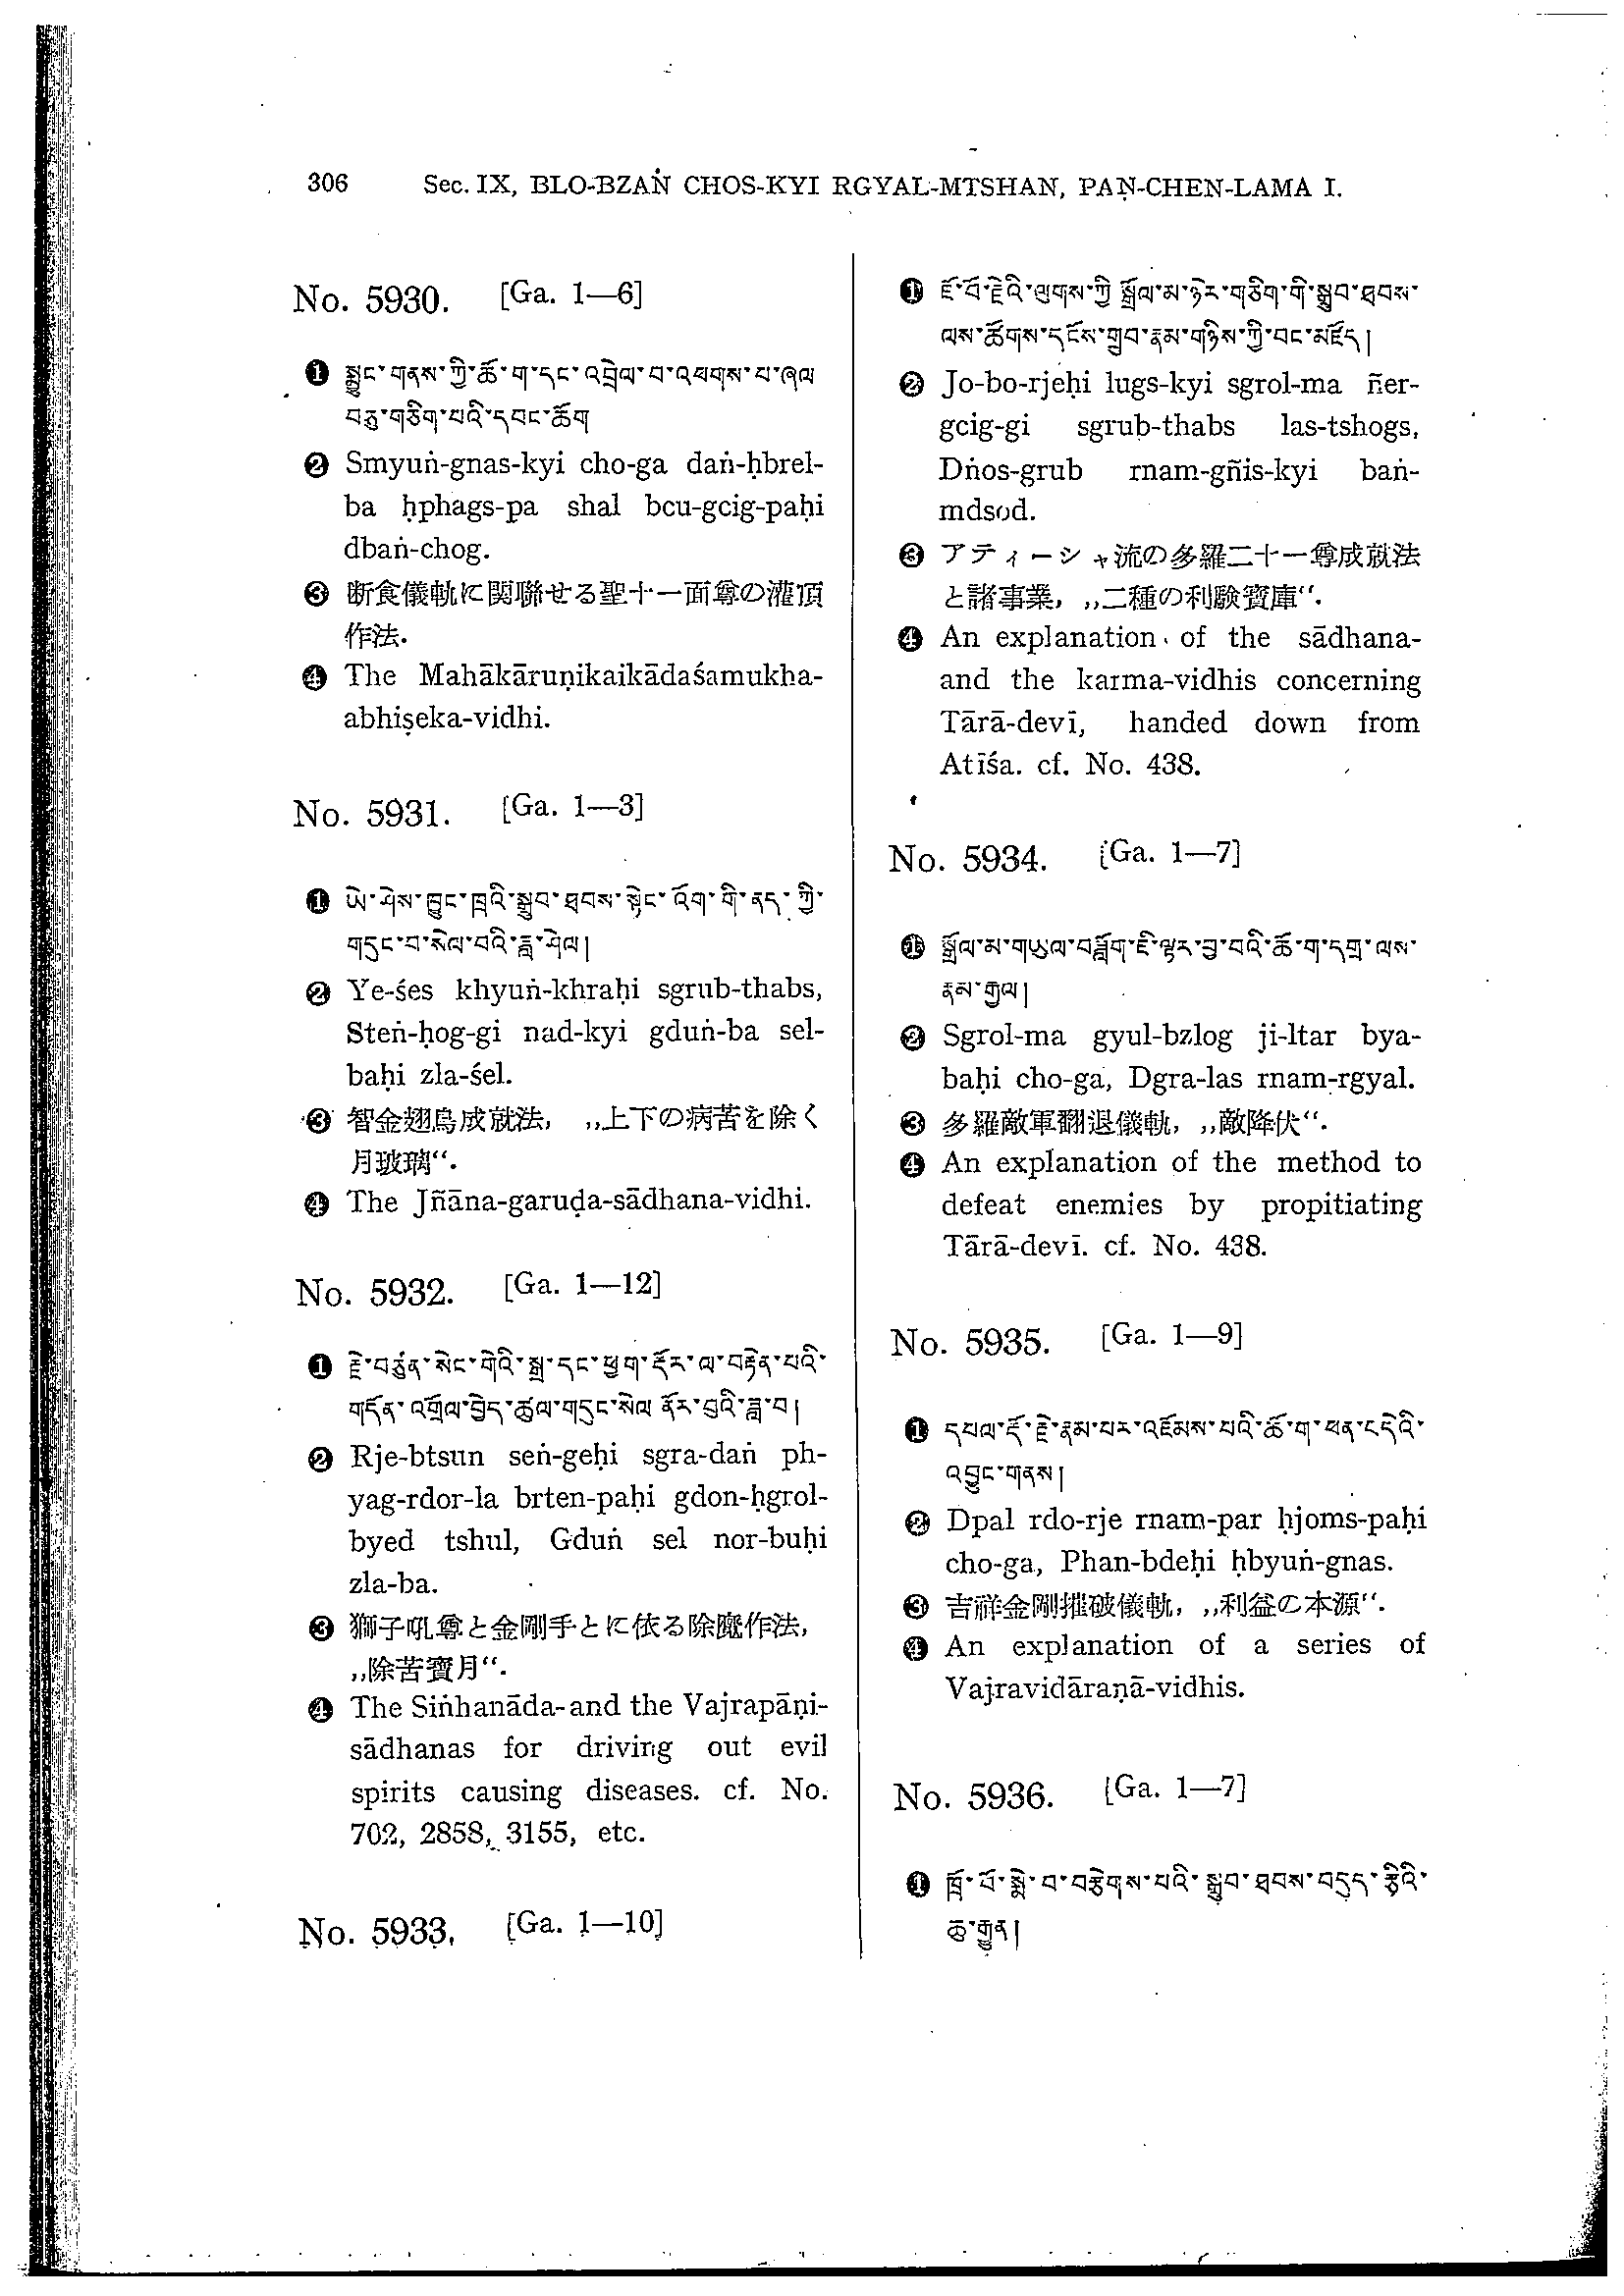 306 Sec. IX, BLO-BZAṄ CHOS-KYI RGYAL-MTSHAN, PAṆ-CHEN-LAMA I.
No. 5930. [Ga. 1—6]
❶ སྨྱུང་གནས་ཀྱི་ཆོ་ག་དང་འབྲེལ་བ་འཕགས་པ་ཞལ
བཅུ་གཅིག་པའི་དབང་ཆོག
❷ Smyuṅ-gnas-kyi cho-ga daṅ-ḥbrel-
ba ḥphags-pa shal bcu-gcig-paḥi
dbaṅ-chog.
❸ 断食儀軌に関聯せる聖十一面尊の灌頂
作法.
❹ The Mahākāruṇikaikādaśamukha-
abhiṣeka-vidhi.
No. 5931. [Ga. 1—3]
❶ ཡེ་ཤེས་ཁྱུང་ཁྲའི་སྒྲུབ་ཐབས་སྟེང་འོག་གི་ནད་ཀྱི་
གདུང་བ་སེལ་བའི་ཟླ་ཤེལ།
❷ Ye-śes khyuṅ-khraḥi sgrub-thabs,
Steṅ-ḥog-gi nad-kyi gduṅ-ba sel-
baḥi zla-śel.
❸ 智金翅鳥成就法, „上下の病苦を除く
月玻璃“.
❹ The Jñāna-garuḍa-sādhana-vidhi.
No. 5932. [Ga. 1—12]
❶ རྗེ་བཙུན་སེང་གེའི་སྒྲ་དང་ཕྱག་རྡོར་ལ་བརྟེན་པའི་
གདོན་འགྲོལ་བྱེད་ཚུལ་གདུང་སེལ་ནོར་བུའི་ཟླ་བ།
❷ Rje-btsun seṅ-geḥi sgra-daṅ ph-
yag-rdor-la brten-paḥi gdon-ḥgrol-
byed tshul, Gduṅ sel nor-buḥi
zla-ba.
❸ 獅子吼尊と金剛手とに依る除魔作法,
„除苦寶月“.
❹ The Siṅhanāda-and the Vajrapāṇi-
sādhanas for driving out evil
spirits causing diseases. cf. No.
702, 2858, 3155, etc.
No. 5933. [Ga. 1—10]
❶ ཇོ་བོ་རྗེའི་ལུགས་ཀྱི་སྒྲོལ་མ་ཉེར་གཅིག་གི་སྒྲུབ་ཐབས་
ལས་ཚོགས་དངོས་གྲུབ་རྣམ་གཉིས་ཀྱི་བང་མཛོད།
❷ Jo-bo-rjeḥi lugs-kyi sgrol-ma ñer-
gcig-gi sgrub-thabs las-tshogs,
Dṅos-grub rnam-gñis-kyi baṅ-
mdsod.
❸ アティーシャ流の多羅二十一尊成就法
と諸事業, „二種の利験寶庫“.
❹ An explanation of the sādhana-
and the karma-vidhis concerning
Tārā-devī, handed down from
Atīśa. cf. No. 438.
No. 5934. [Ga. 1—7]
❶ སྒྲོལ་མ་གཡུལ་བཟློག་ཇི་ལྟར་བྱ་བའི་ཆོ་ག་དགྲ་ལས་
རྣམ་རྒྱལ།
❷ Sgrol-ma gyul-bzlog ji-ltar bya-
baḥi cho-ga, Dgra-las rnam-rgyal.
❸ 多羅敵軍翻退儀軌, „敵降伏“.
❹ An explanation of the method to
defeat enemies by propitiating
Tārā-devī. cf. No. 438.
No. 5935. [Ga. 1—9]
❶ དཔལ་རྡོ་རྗེ་རྣམ་པར་འཇོམས་པའི་ཆོ་ག་ཕན་བདེའི་
འབྱུང་གནས།
❷ Dpal rdo-rje rnam-par ḥjoms-paḥi
cho-ga, Phan-bdeḥi ḥbyuṅ-gnas.
❸ 吉祥金剛摧破儀軌, „利益の本源“.
❹ An explanation of a series of
Vajravidāraṇā-vidhis.
No. 5936. [Ga. 1—7]
❶ ཁྲོ་བོ་སྨེ་བ་བརྩེགས་པའི་སྒྲུབ་ཐབས་བདུད་རྩིའི་
ཆུ་རྒྱུན།